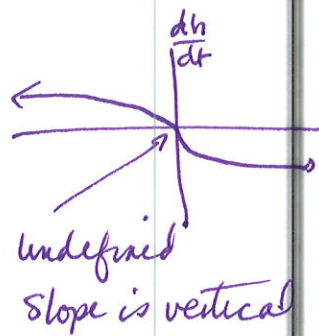 dh
dt
undefined
slope is vertical